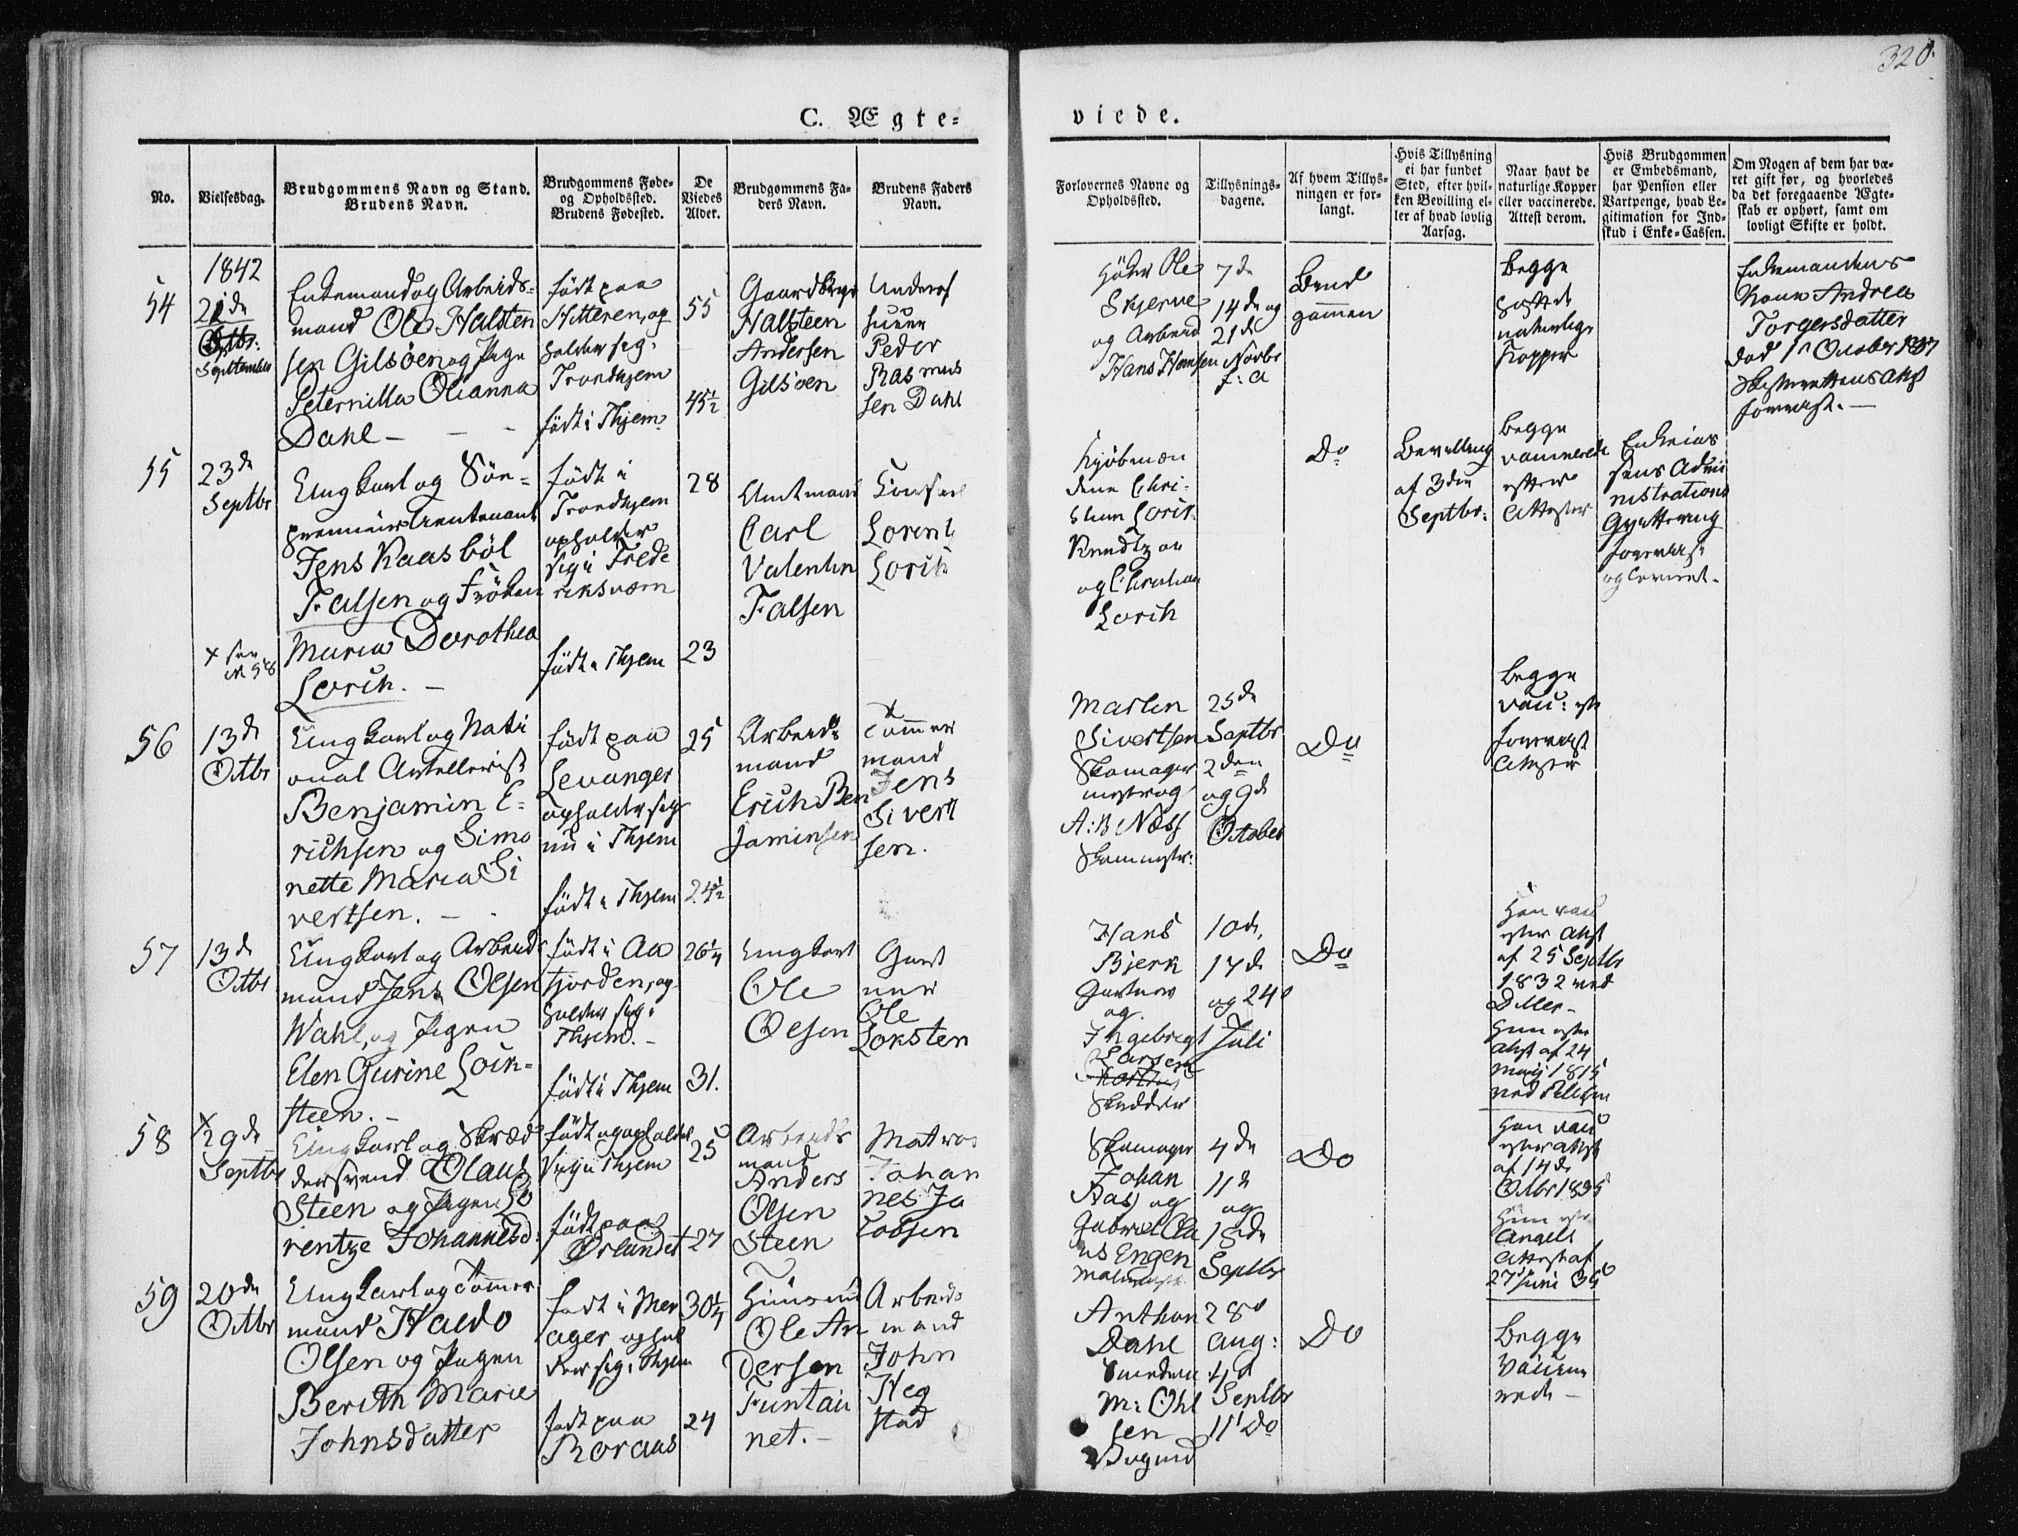 320.
C. Ægte=
viede.
No.
Vielsesdag.
Brudgommens Navn og Stand.
Brudens Navn.
Brudgommens Føde-
og Opholdssted.
Brudens Fødested.
De
Viedes
Alder.
Brudgommens Fa-
ders Navn.
Brudens Faders
Navn.
Forlovernes Navne og
Opholdssted.
Tillysnings-
dagene.
Af hvem Tillys-
ningen er for-
langt.
Hvis Tillysning
ei har fundet
Sted, efter hvil-
ken Bevilling el-
ler af hvad lovlig
Aarsag.
Naar havt de
naturlige Kopper
eller vaccinerede.
Attest derom.
Hvis Brudgommen
er Embedsmand,
har Pension eller
Vartpenge, hvad Le-
gitimation for Ind-
skud i Enke=Cassen.
Om Nogen af dem har væ-
ret gift før, og hvorledes
da det foregaaende Ægte-
skab er ophørt, samt om
lovligt Skifte er holdt.
1842
54
Septembr
Enkemand og Arbeids-
mand Ole Halsten
sen Gilsöen og Pige
Peternilla Olianna
Dahl -
født paa
Hitteren, op
holder sig i
Trondhjem
født i Thjem
55
45½
Gaardbrugr
Halsteen
Andersen
Gilsöen
Underof
Peder
Rasmus
sen Dahl
Ole
Skjerve
og Arbeid
Hans Hansen
7de
14de og
21de
Novbr
f: a
Brud
gommen
Begge
havt de
naturlige
Kopper
Enkemandens
Kone Andrea
Torgersdatter
død 1 October 1837
Skifterettens Attest
forevist. -
55
23de
Septbr
Ungkarl og Sön-
premierlieutenant
Jens Kaasböl
Falsen og Fröken
Maria Dorothea
Lorck. -
født i
Trondhjem
opholder
sig i Frede
riksværn
født i Thjem
28
23
Amtmand
Carl
Valentin
Falsen
Consul
Lorentz
Lorck
Kjøbmæn
dene Chri-
stian Lorck
Knudtzon
og
Lorck
Do
Bevilling
af 3die
Septbr:
Begge
vaccinerede
efter
Attester
Administrations
forevist
56
x see
N 58
13de
Octbr
Ungkarl og Nati
onal Artellerist
Benjamin E-
richsen og Simo
nette Maria Si
vertsen. -
født paa
Levanger
opholder sig
nu i Thjem
født i Thjem
25
24½
Arbeids
mand
Erich Ben
jaminsen
Tømmer
mand
Jens
Sivert
sen.
Marten
Sivertsen
Skomager
mester og
A: B Næss
25de
Septbr
2den
og 9de
October
Do
Begge
vacc: efter
foreviist
Attester
57
13de
Octbr
Ungkarl og Arbeids
mand Jens Olsen
Wahl, og Pigen
Elen Gurine Lock-
steen. -
født i Aa
fjorden, op
holder sig i
Thjem. -
født i Thjem
26¼
31.
Ungkarl
Ole
Olsen
Gart
ner
Ole
Loksten
Hans
Bjerk
Gartner
og
Ingebrigt
Larsen
Skredder
10de,
17de
og 24d
Juli
Do
Han vacc
efter Attest
af 25 Septbr
1832 ved
Hun efter
Attest af 24
May 1815
58
x 29de
Septbr
Ungkarl og Skræd
dersvend Olaus
Steen og Pigen Lo
rentze Johannesd:
født og opholder
sig i Thjem
født paa
Ørlandet
25
27
Arbeids
mand
Anders
Olsen
Steen
Matros
Johan
nes Ja
cobsen
Skomager
Johan
Aas og
Gabriel Cla
us Engen
4de
11te
og
18de
Septbr
Do
Han vacc
efter Attest
af 14de
Octbr 1835
Hun efter
Angels
Attest af
27 Juni 35
59
20de
Octbr
Ungkarl og Tømmer
mand Haldo
Olsen og Pigen
Berith Marie
Johnsdatter
født i Mer
ager, ophol
der sig i Thjem
født paa
Roraas
30¼
24
Huusmd
Ole An
dersen
Funtau
net. -
Arbeids
mand
John
Heg
stad
Anthon
Dahl
M: Ohl
sen
28d
Aug:
4d
Septbr
11te Do
Do
Begge
Vaccine
rede -